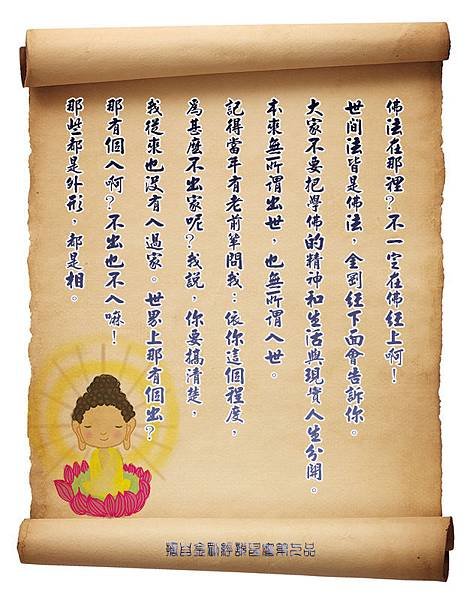 佛法在那裡?不一定在佛經上啊!
世間法皆是佛法,金剛經下面會告訴你。
大家不要把學佛的精神和生活與現實人生分開。
本來無所謂出世,也無所謂入世。
記得當年有老前輩問我:依你這個程度,
為甚麼不出家呢?我說,你要搞清楚,
我從來也沒有入過家。世界上那有個出?
那有個入啊?不出也不入嘛!
那些都是外形,都是相。